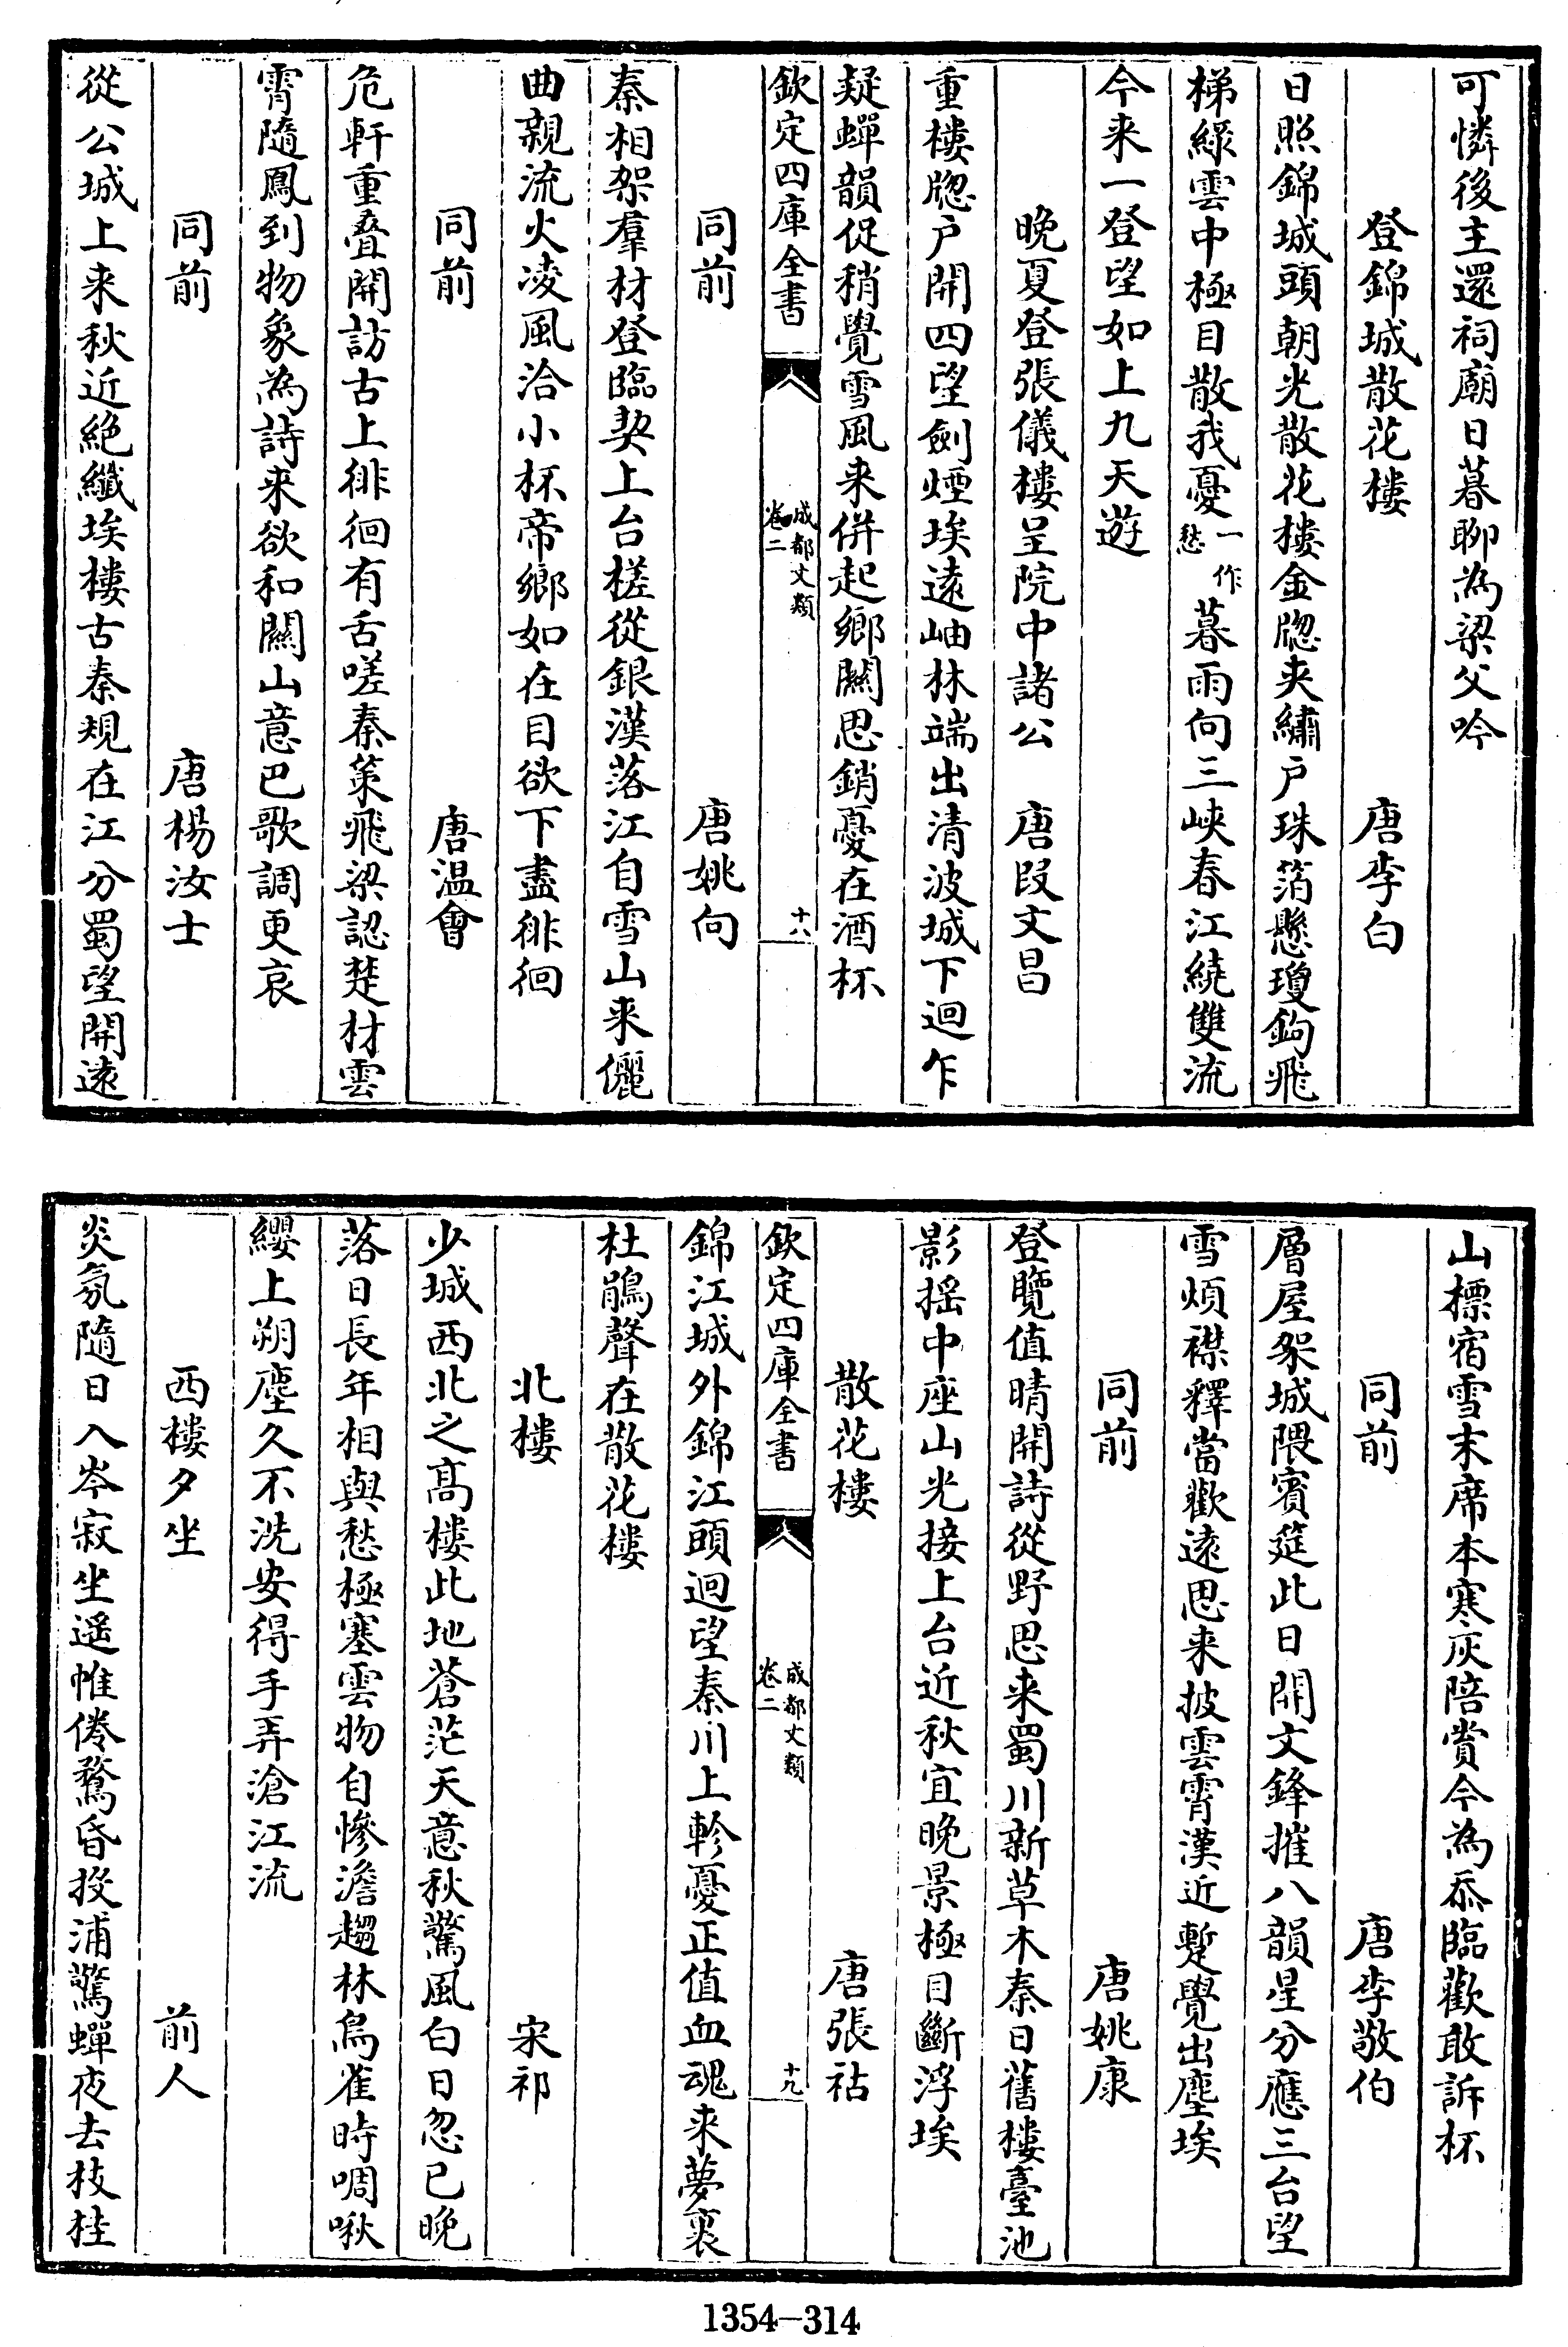 可憐後主還祠廟日暮聊為梁父吟
登錦城散花樓　唐李白
日照錦城頭朝光散花樓金牕夾繡戶珠箔懸瓊鉤飛
梯綠雲中極目散我憂一作愁暮雨向三峽春江繞雙流
今来一登望如上九天遊
晚夏登張儀樓呈院中諸公　唐段文昌
重樓牕戶開四望劍煙埃遠岫林端出清波城下迴乍
疑蟬韻促稍覺雪風来併起鄉關思銷憂在酒杯
欽定四庫全書　成都文類卷二　十八
同前　唐姚向
秦相架羣材登臨契上台槎從銀漢落江自雪山来儷
曲親流火凌風洽小杯帝鄉如在目欲下盡徘徊
同前　唐温會
危軒重疊開訪古上徘徊有舌嗟秦策飛梁認楚材雲
霄隨鳳到物象為詩来欲和關山意巴歌調更哀
同前　唐楊汝士
從公城上来秋近絕纖埃樓古秦規在江分蜀望開遠
山標宿雪末席本寒灰陪賞今為忝臨歡敢訴杯
同前　唐李敬伯
層屋架城隈賓筵此日開文鋒摧八韻星分應三台望
雪煩襟釋當歡遠思来披雲霄漢近蹔覺出塵埃
同前　唐姚康
登覽值晴開詩從野思来蜀川新草木秦日舊樓臺池
影摇中座山光接上台近秋宜晚景極目斷浮埃
散花樓　唐張祜
欽定四庫全書　成都文類卷二　十九
錦江城外錦江頭迴望秦川上軫憂正值血魂来夢裏
杜鵑聲在散花樓
北樓　宋祁
少城西北之髙樓此地蒼茫天意秋驚風白日忽已晚
落日長年相與愁極塞雲物自慘澹趨林鳥雀時啁啾
纓上朔塵久不洗安得手弄滄江流
西樓夕坐　前人
炎氛隨日入岑寂坐遥帷倦鶩昏投浦驚蟬夜去枝桂
1354—314